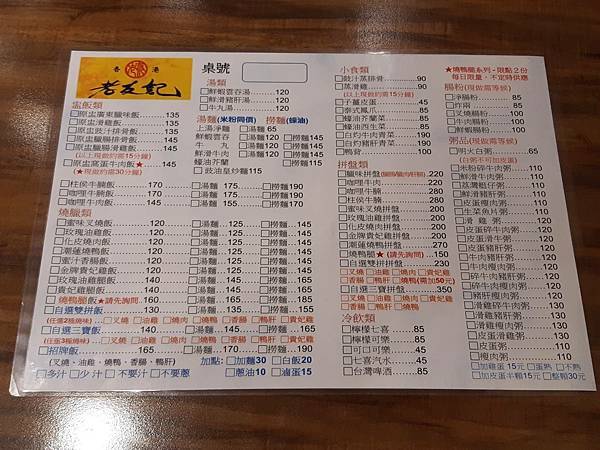 香港
老友記
桌號
盅飯類
□原盅廣東臘味飯 135
□原盅滑雞飯 135
□原盅豉汁排骨飯 145
□原盅臘腸排骨飯 145
□原盅臘腸滑雞飯 145
(以上現做約需15分鐘)
□原盅窩蛋牛肉飯★ 145
(★現做約需30分鐘)
□柱侯牛腩飯 170 □湯麵 145 □撈麵 170
□咖哩牛肉飯 145 □湯麵 145 □撈麵 145
□咖哩牛腩飯 170 □湯麵 155 □撈麵 170
燒臘類
□蜜味叉燒飯 125 □湯麵 125 □撈麵 145
□玫瑰油雞飯 125 □湯麵 125 □撈麵 145
□化皮燒肉飯 125 □湯麵 125 □撈麵 145
□潮蓮燒鴨飯 125 □湯麵 125 □撈麵 145
□蜜汁香腸飯 120 □湯麵 120 □撈麵 140
□金牌貴妃雞飯 125 □湯麵 125 □撈麵 145
□玫瑰油雞腿飯 145 □湯麵 145 □撈麵 165
□貴妃雞腿飯 145 □湯麵 145 □撈麵 165
□燒鴨腿飯★請先詢問.160 □湯麵 160 □撈麵 185
□自選雙拼飯 130 □湯麵 135 □撈麵 155
(任選2種燒味)□叉燒 □油雞 □燒肉 □燒鴨 □香腸 □鴨肝 □貴妃雞
□自選三寶飯 140 □湯麵 145 □撈麵 165
(任選3種燒味)□叉燒 □油雞 □燒肉 □燒鴨 □香腸 □鴨肝 □貴妃雞
□招牌飯 165 □湯麵 170 □撈麵 190
(叉燒、油雞、燒鴨、香腸、鴨肝) 加點: □加麵30 □白飯20
□多汁 □少汁 □不要汁 □不要蔥 □蔥油10 □滷蛋15
湯類
□鮮蝦雲吞湯 120
□鮮滑豬肝湯 120
□牛丸湯 120
湯麵(米粉同價) 撈麵(蠔油)
上湯淨麵 □湯麵 65
鮮蝦雲吞 □湯麵 120 □撈麵 145
牛丸 □湯麵 120 □撈麵 145
鮮滑牛肉 □湯麵 120 □撈麵 145
蠔油芥蘭 □撈麵 115
□豉油皇炒麵 115
小食類
□豉汁蒸排骨 90
□蒸滑雞 90
(以上現做約需15分鐘)
□子薑皮蛋 45
□泰式鳳爪 85
□蠔油芥蘭菜 85
□蠔油西生菜 85
□灼牛肉青菜 190
□白灼豬肝青菜 180
□鴨脊 100
拼盤類
□臘味拼盤(臘腸/臘肉/肝腸) 220
□咖哩牛肉 200
□咖哩牛腩 220
□柱侯牛腩 220
□蜜味叉燒拼盤 200
□玫瑰油雞拼盤 200
□化皮燒肉拼盤 200
□金牌貴妃雞拼盤 200
□潮蓮燒鴨拼盤 270
□燒鴨腿★(請先詢問) 150
□自選雙拼拼盤 230
□叉燒 □油雞 □燒肉 □貴妃雞
□香腸 □鴨肝 □燒鴨(需加50元)
□自選三寶拼盤 350
□叉燒 □油雞 □燒肉 □貴妃雞
□香腸 □鴨肝 □燒鴨
冷飲類
□檸檬七喜 85
□檸檬可樂 85
□可口可樂 45
□七喜汽水 45
□台灣啤酒 85
★燒鴨腿系列-限點2份
每日限量,不定時供應
腸粉(現做需等候)
□淨腸粉 85
□炸兩 85
□叉燒腸粉 100
□牛肉腸粉 100
□鮮蝦腸粉 100
粥品(現做需等候)
□明火白粥 65
(白粥不可加皮蛋)
□米粉碎牛肉粥 110
□鮮滑牛肉粥 110
□荔灣艇仔粥 110
□鮮滑豬肝粥 110
□皮蛋瘦肉粥 110
□生菜魚片粥 110
□滑雞粥 110
□皮蛋碎牛肉粥 110
□皮蛋滑牛粥 110
□皮蛋豬肝粥 110
□牛肉豬肝粥 110
□牛肉瘦肉粥 110
□豬肝瘦肉粥 110
□滑雞碎牛肉粥 130
□滑雞牛肉粥 130
□滑雞豬肝粥 130
□滑雞瘦肉粥 130
□皮蛋滑雞粥 130
□皮蛋粥 110
□瘦肉粥 110
□加雞蛋 15元 □蛋熟 □不熟
□加皮蛋半顆15元 □整顆30元